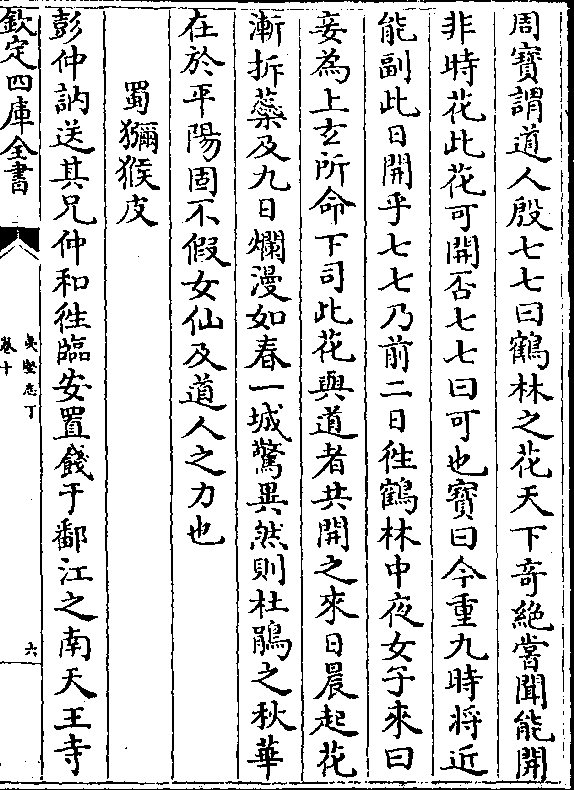 周寶謂道人殷七七曰鶴林之花天下奇絶嘗聞能開
非時花此花可開否七七曰可也寶曰今重九時將近
能副此日開乎七七乃前二日徃鶴林中夜女子來曰
妾為上玄所命下司此花與道者共開之來日晨起花
漸拆蘂及九日爛漫如春一城驚異然則杜鵑之秋華
在於平陽固不假女仙及道人之力也
蜀獼猴皮
彭仲訥送其兄仲和徃臨安置餞于鄱江之南天王寺
欽定四庫全書
夷堅志丁
卷十
六